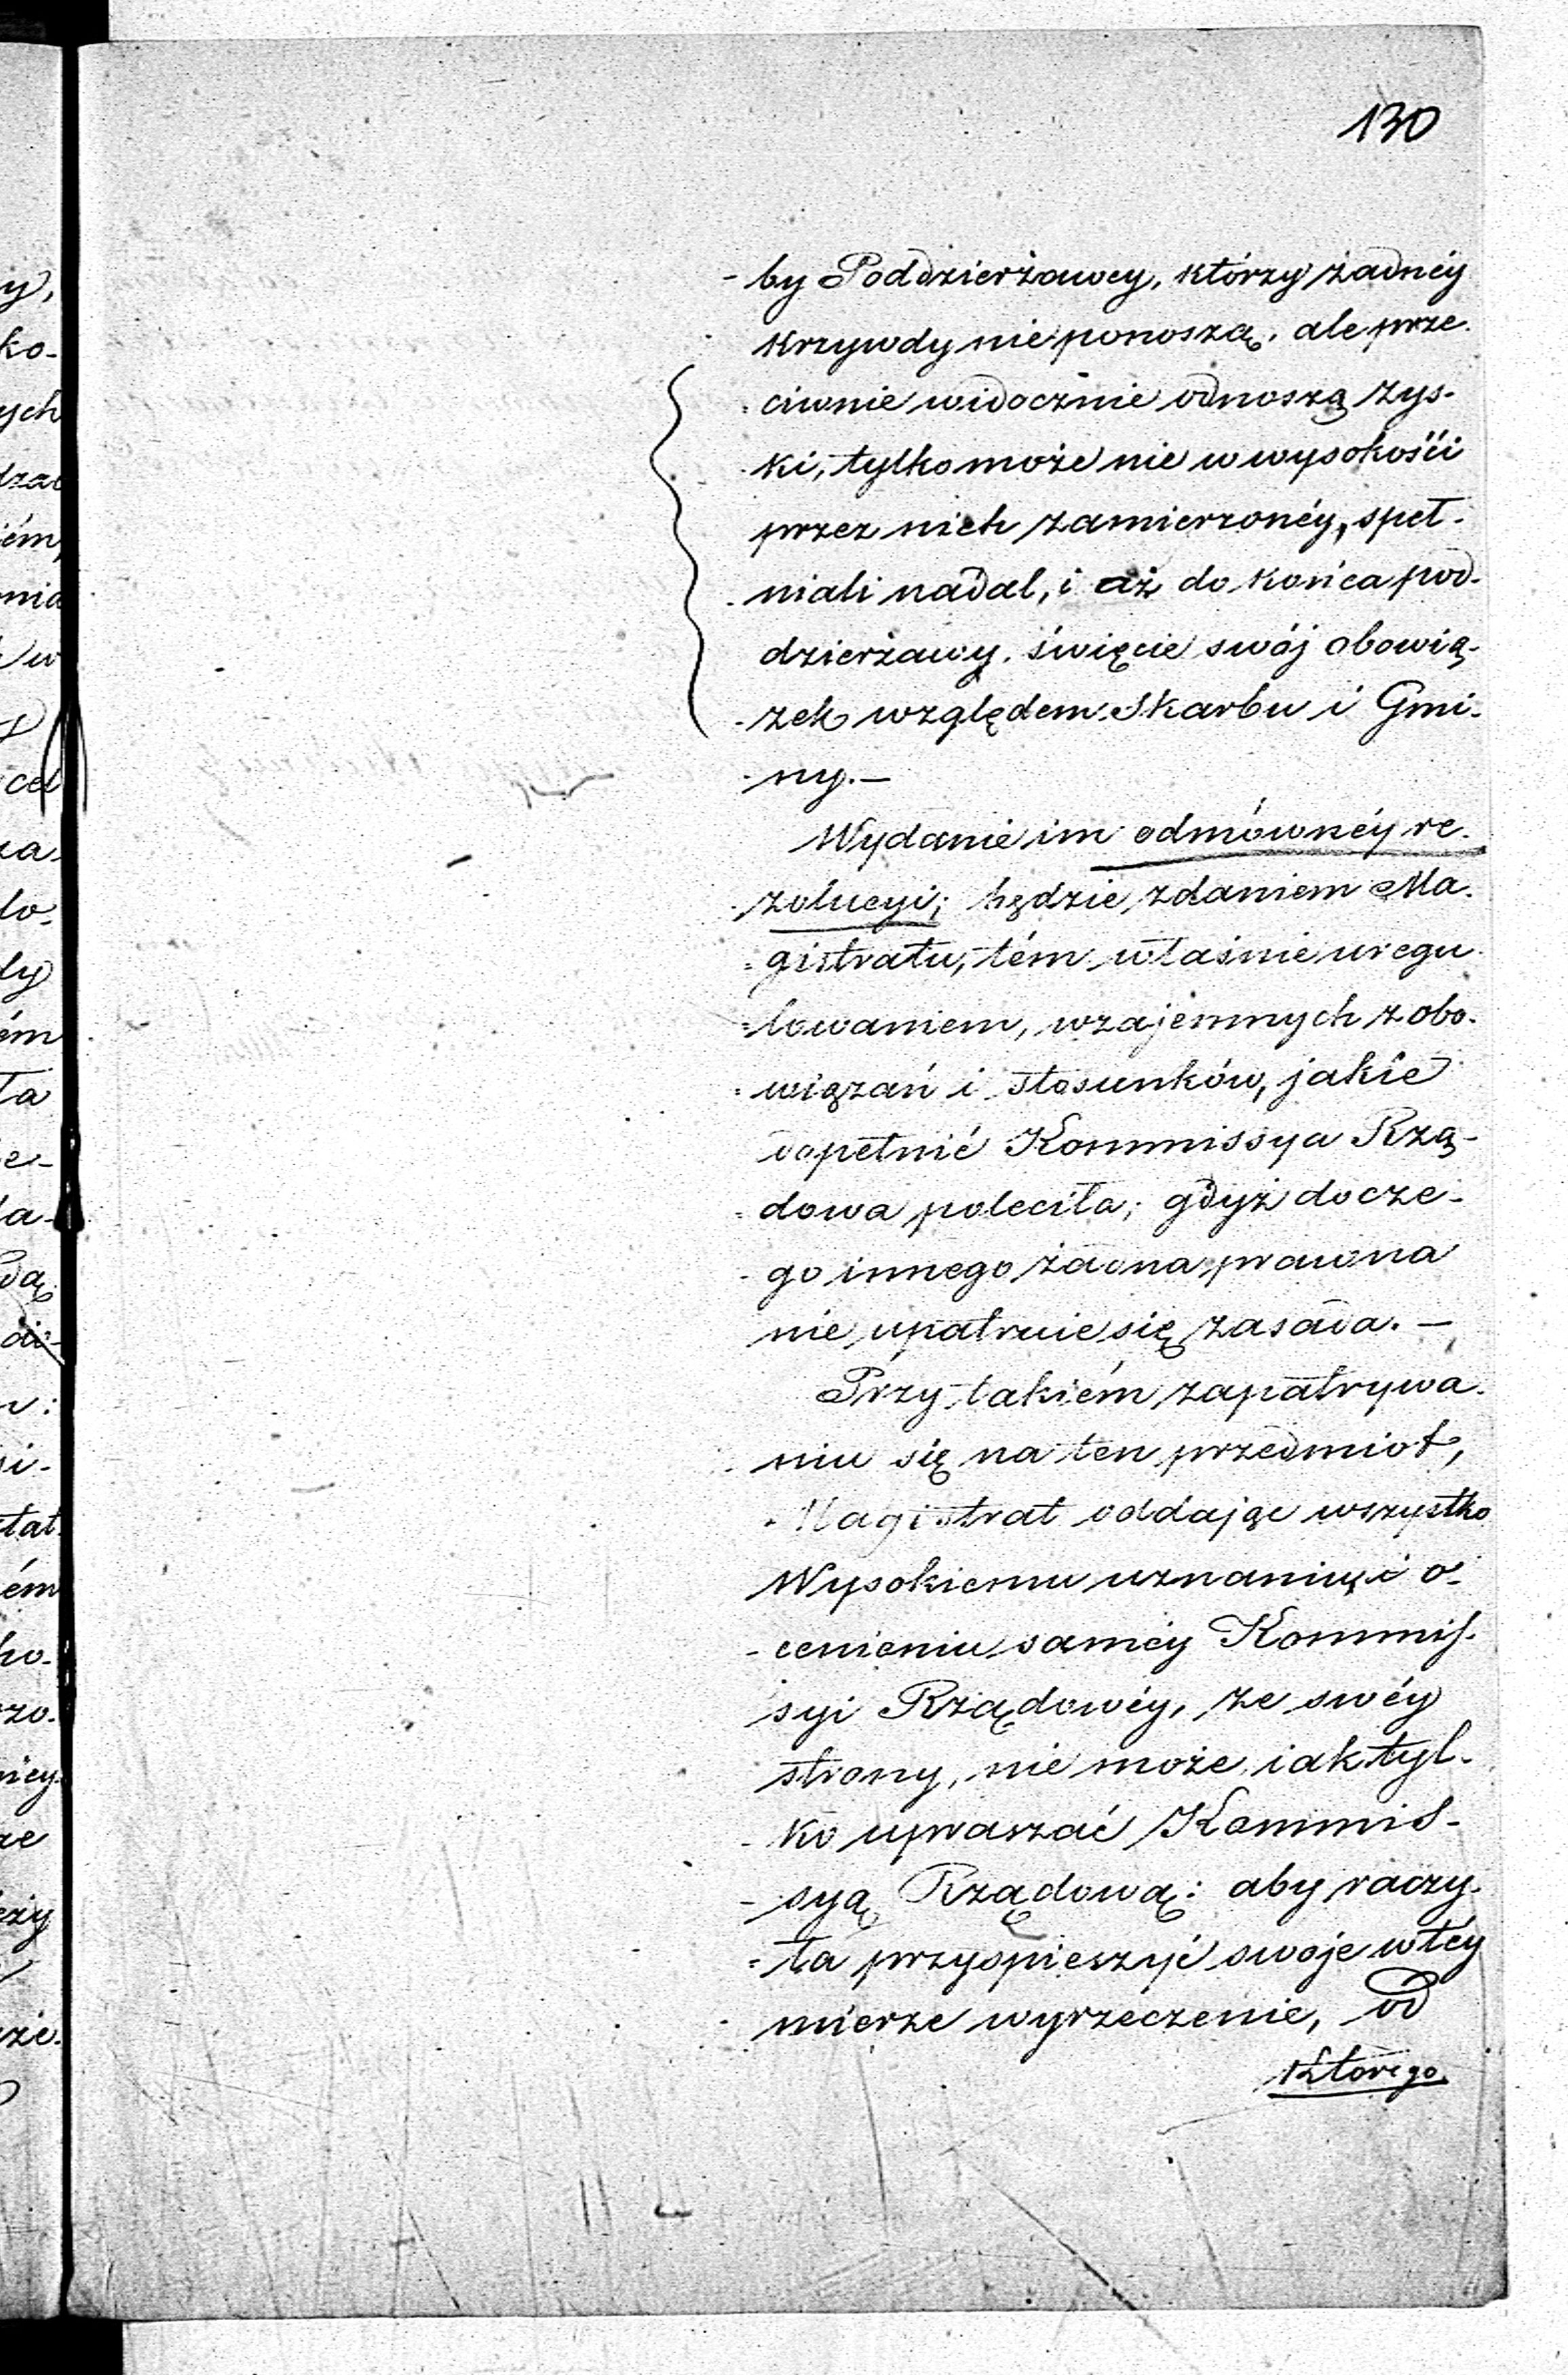 130
- by Poddzierżawcy, którzy żadnéy
krzywdy nie ponoszą, ale prze-
- ciwnie widocznie odnoszą zys-
- ki, tylko może nie w wysokości
przez nich zamierzonéy, speł-
- niali nadal, i aż do końca pod-
dzierżawy, święcie swój obowią-
- zek względem Skarbu i Gmi-
- ny. —
Wydanie im odmównéy re-
- zolucyi; będzie zdaniem Ma-
= gistratu, tém właśnie uregu-
= lowaniem, wzajemnych zobo-
= wiązań i stosunków, jakie
dopełnić Kommissya Rzą-
= dowa poleciła; gdyż do cze-
- go innego żadna prawna
nie upatruie się zasada. —
Przy takiém zapatrywa-
- niu się na ten przedmiot,
Magistrat oddając wszystko
Wysokiemu uznaniu i o-
- cenieniu saméy Kommis-
syi Rządowéy, ze swéy
strony, nie może iak tyl-
- ko upraszać Kommis-
- syą Rządową: aby raczy-
= ła przyspieszyć swoje w téy
mierze wyrzeczenie, od
którego
y,
ko-
ych
ém,
w
cel
lo-
dy
ém
ła
e-
la-
dą
si-
stat
ém
ho-
rzo-
ży